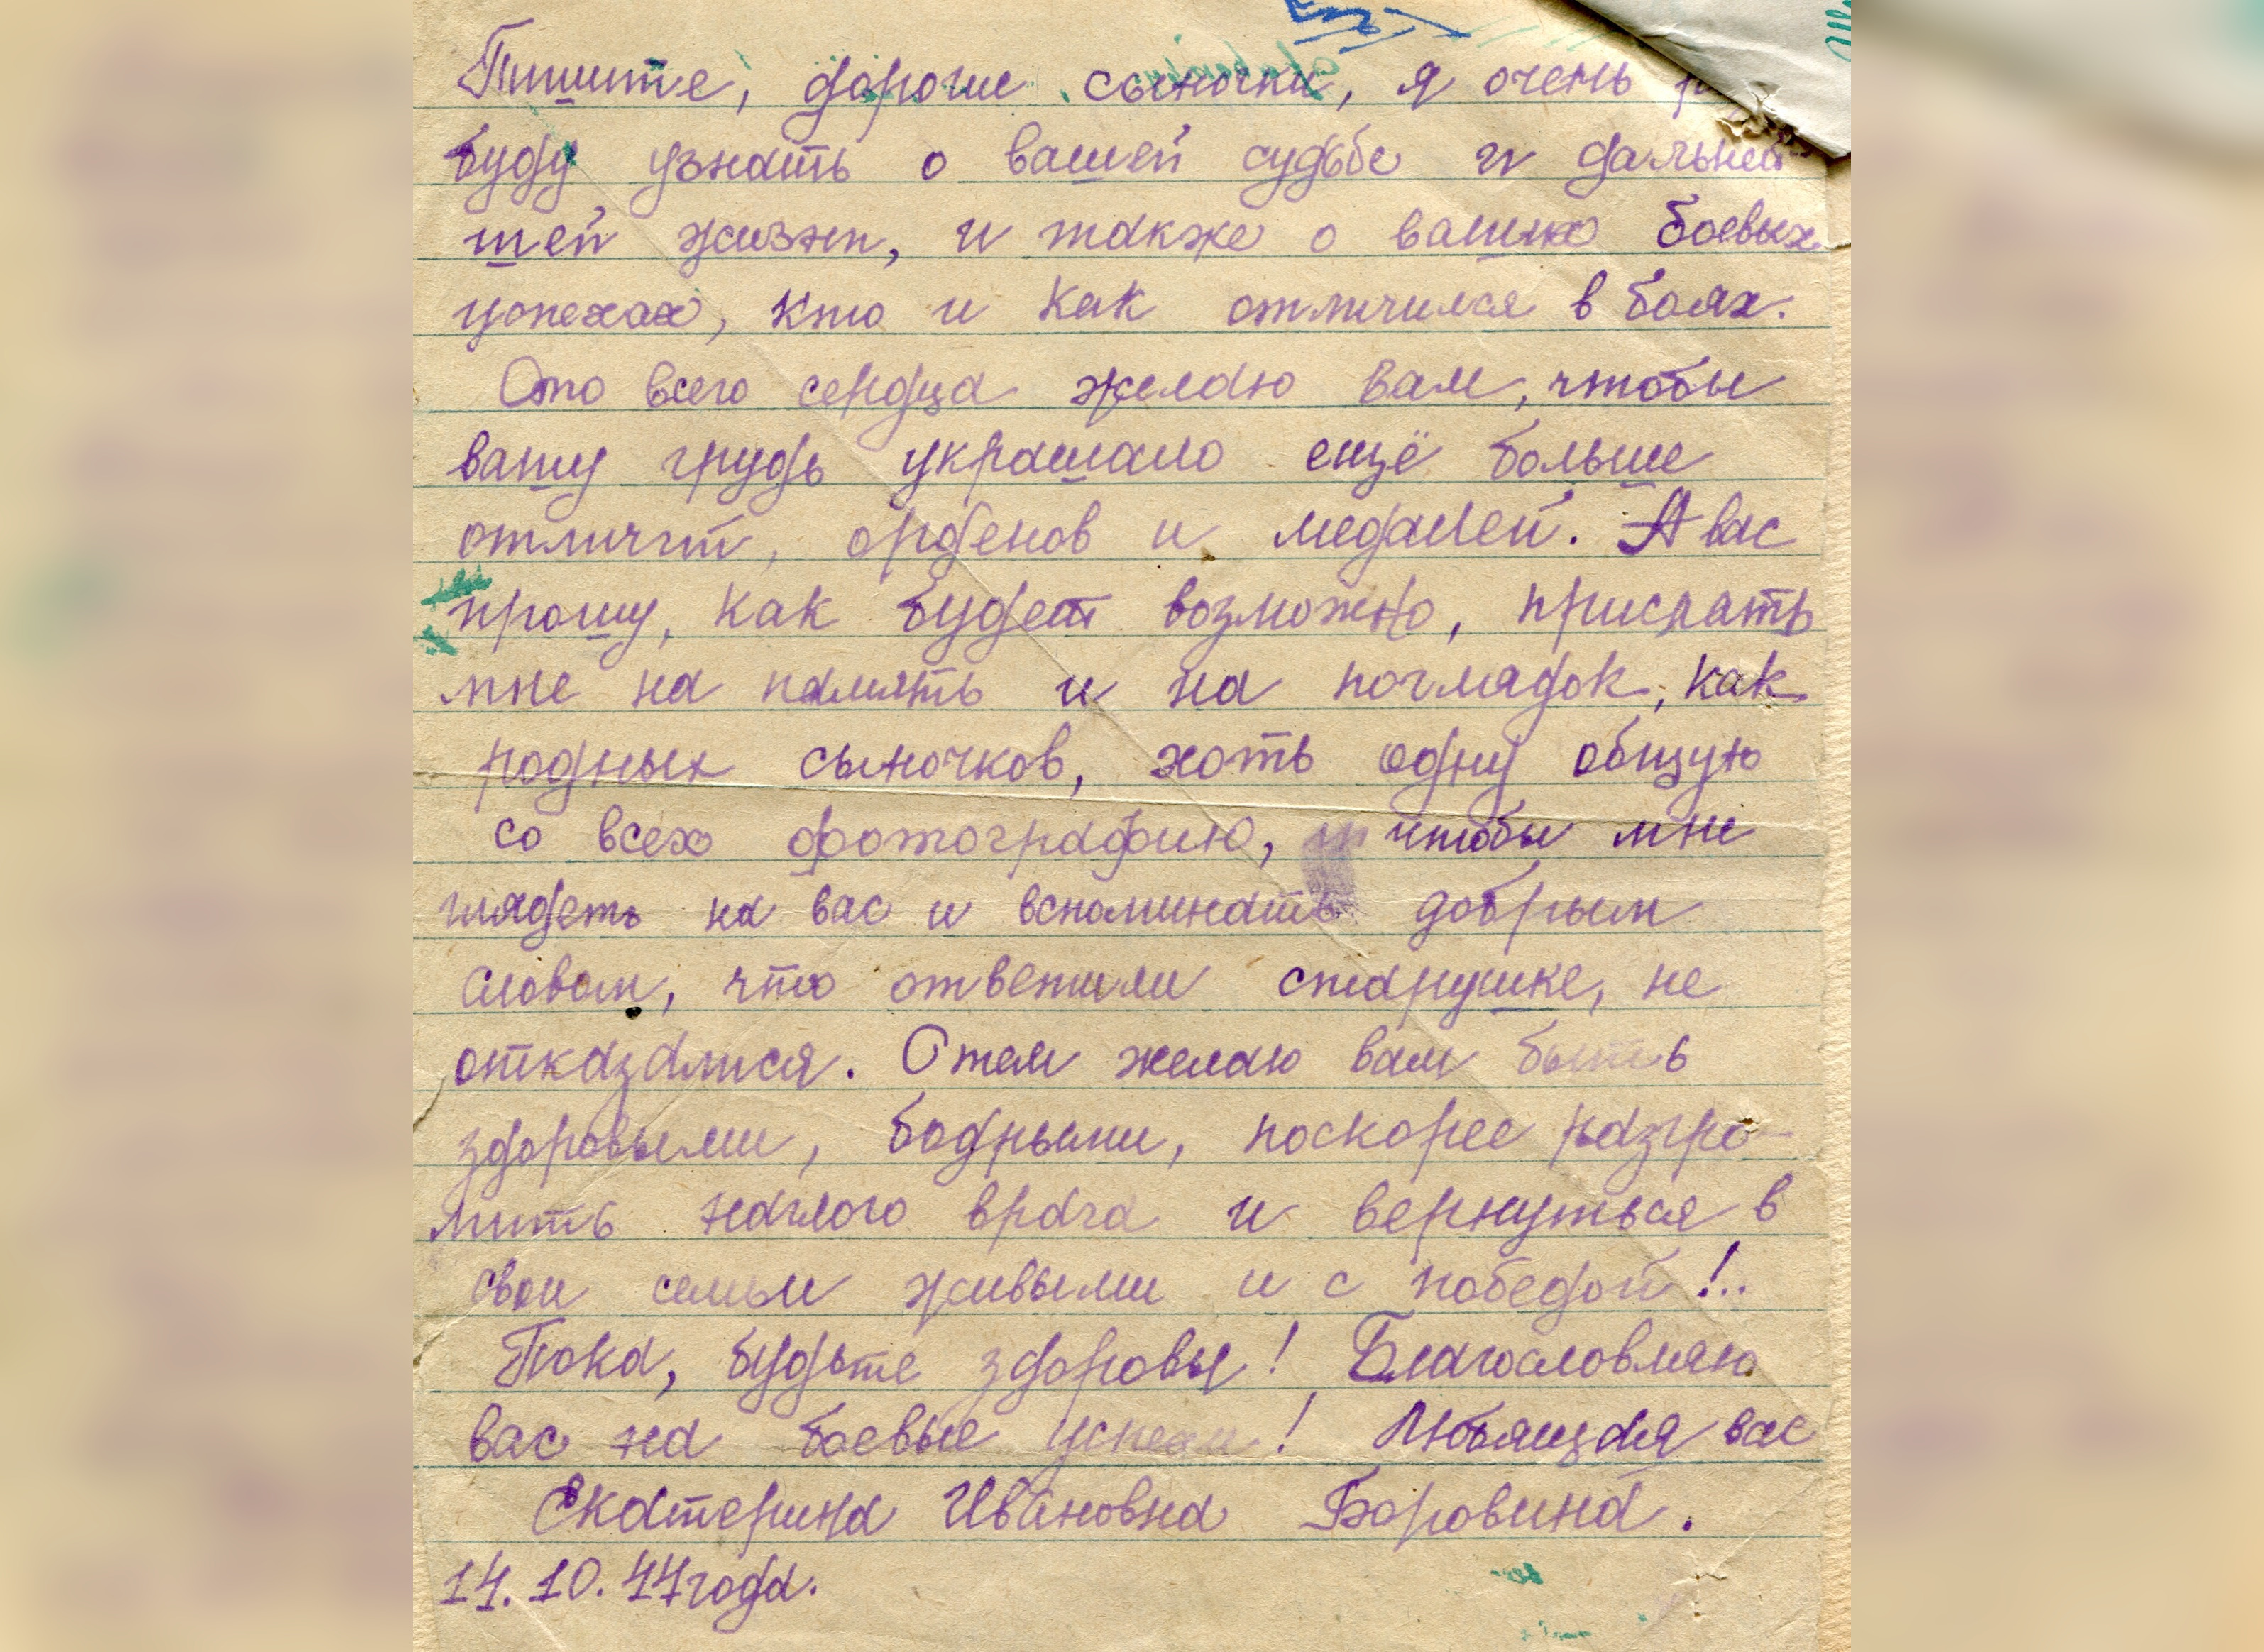 Пишите, дорогие сыночки, я очень
буду узнать о вашей судьбе и дальней-
шей жизни, и также о ваших боевых
успехах, кто и как отличился в боях.
Ото всего сердца желаю вам, чтобы
вашу грудь украшало ещё больше
отличий, орденов и медалей. А вас
прошу, как будет возможно, прислать
мне на память и на погляdок, как
родных сыночков, хоть одну общую
со всех фотографию, чтобы мне
глядеть на вас и вспоминать добрым
словом, что ответили старушке, не
отказалися. С тем желаю вам быть
здоровыми, бодрыми, поскорее разгро-
мить наглого врага и вернуться в
свои семьи живыми и с победой!..
Пока, будьте здоровы! Благословляю
вас на боевые успехи! Любящая вас
Екатерина Ивановна Боровина.
14.10.44 года.